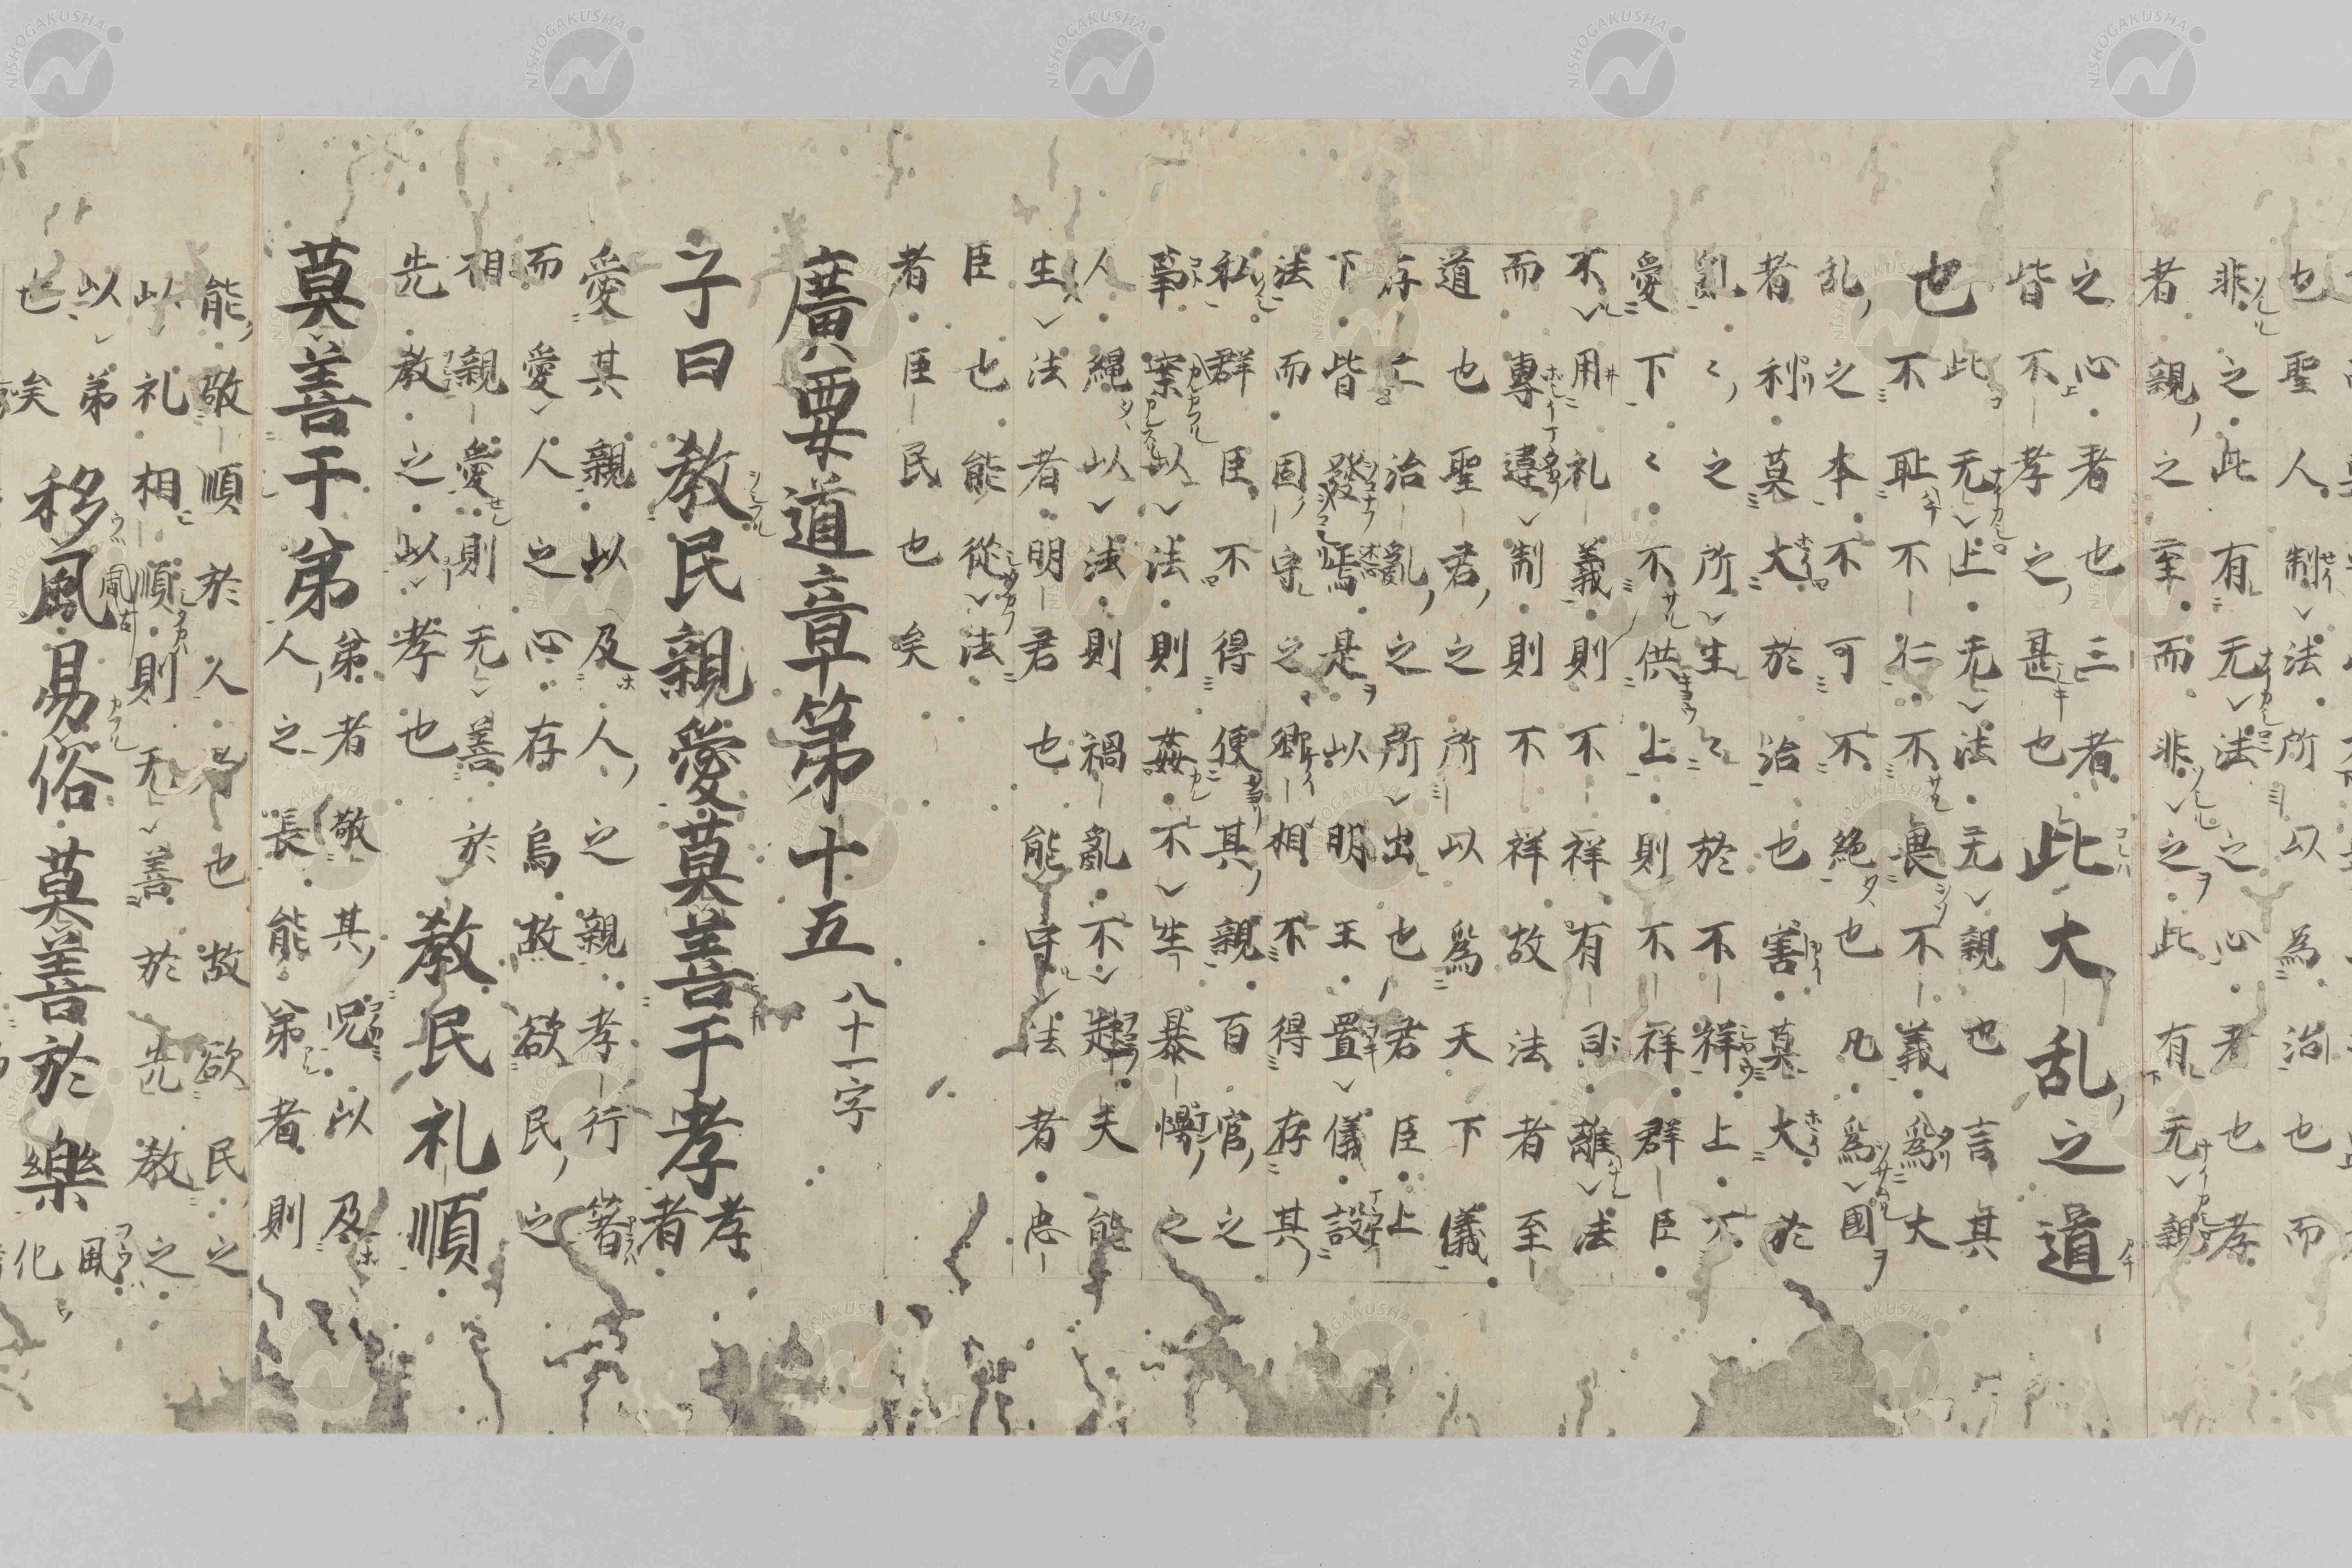 也聖人制法所以為治也而
非之此有无法之心者也孝
者親之至而非之此有无親
之心者也三者
皆不孝之甚也
此大乱之道
也
此无上无法无親也言其
不耻不仁不畏不義為大
乱之本不可不絶也凡為國
者利莫大於治也害莫大於
亂〻之所生〻於不祥上不
愛下〻不供上則不祥群臣
不用礼義則不祥有司離法
而專違制則不祥故法者至
道也聖君之所以為天下儀
存亡治亂之所出也君臣上
下皆發焉是以明王置儀設
法而固守之卿相不得存其
私群臣不得便其親百官之
事案以法則姦不生暴慢之
人縄以法則禍亂不起夫能
生法者明君也能守法者忠
臣也能從法
者臣民也矣
廣要道章第十五 八十一字
子曰教民親愛莫善于孝 孝者
愛其親以及人之親孝行著
而愛人之心存焉故欲民之
相親愛則无善於
先教之以孝也
教民礼順
莫善于弟
弟者敬其兄以及
人之長能弟者則
能敬順於人者也故欲民之
以礼相順則无善於先教之
以弟
也矣
移風易俗莫善於樂
風
化